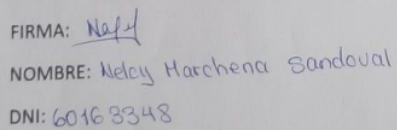 FIRMA: Nefy
NOMBRE: Nelcy Marchena Sandoval
DNI: 60163348